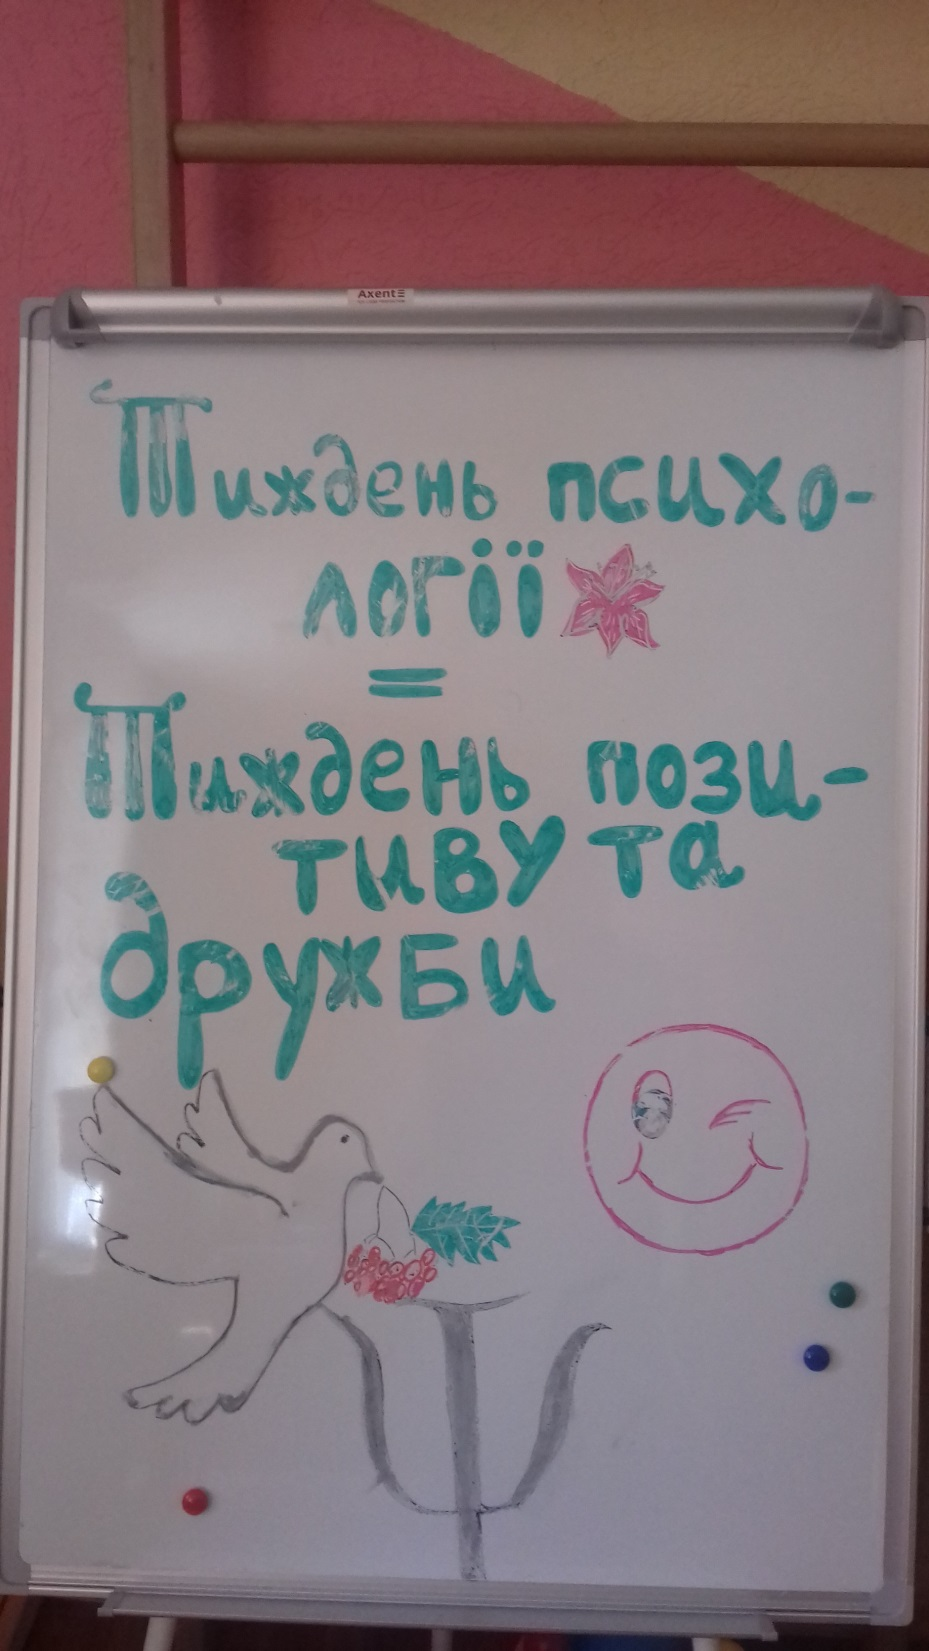 Axent
Тиждень психо-
логії
=
Тиждень пози-
тиву та
дружби
Ψ